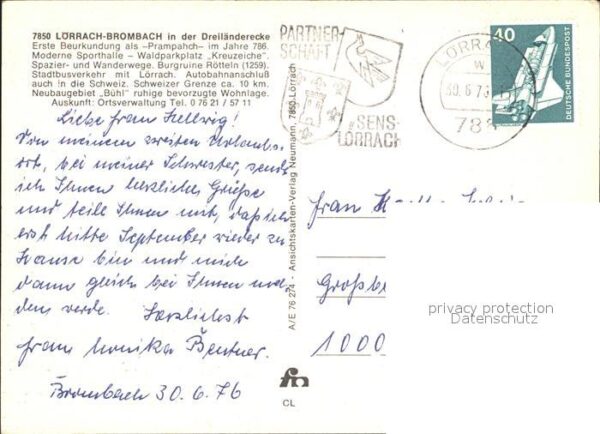 7850 LÖRRACH-BROMBACH in der Dreiländerecke
Erste Beurkundung als –Prampahch– im Jahre 786.
Moderne Sporthalle – Waldparkplatz „Kreuzeiche".
Spazier- und Wanderwege. Burgruine Rötteln (1259).
Stadtbusverkehr mit Lörrach. Autobahnanschluß
auch in die Schweiz. Schweizer Grenze ca. 10 km.
Neubaugebiet „Bühl" ruhige bevorzugte Wohnlage.
Auskunft: Ortsverwaltung Tel. 0 76 21 / 57 11
Liebe Frau Hellwig!
Von meinem zweiten Urlaubs-
ort, bei meiner Schwester, sende
ich Ihnen herzliche Grüße
und teile Ihnen mit, daß ich
erst Mitte September wieder zu
Hause bin und mich
dann gleich bei Ihnen mel-
den werde. Herzlichst
Frau Monika Bentner.
Brombach 30.6.76
A/E 76 274 · Ansichtskarten-Verlag Neumann, 7850 Lörrach
CL
PARTNER-
SCHAFT
SENS
LÖRRACH
LÖRRA
30.6.76
78
40
DEUTSCHE BUNDESPOST
Frau
Großbe
1000
privacy protection
Datenschutz